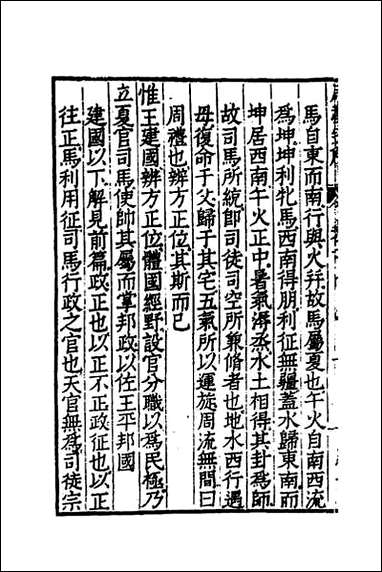 馬自東而南行與火幷故馬屬夏也午火自南西流
爲坤坤利牝馬西南得朋利征無疆蓋水歸東南而
坤居西南午火正中暑氣溽蒸水土相得其卦爲師
故司馬所統卽司徒司空所兼脩者也地水西行遇
母復命于父歸于其宅五氣所以運旋周流無間曰
周禮也辨方正位其斯而已
惟王建國辨方正位體國經野設官分職以爲民極乃
立夏官司馬使帥其屬而掌邦政以佐王平邦國
建國以下解見前篇政正也以正不正政征也以正
往正馬利用征司馬行政之官也天官無爲司徒宗